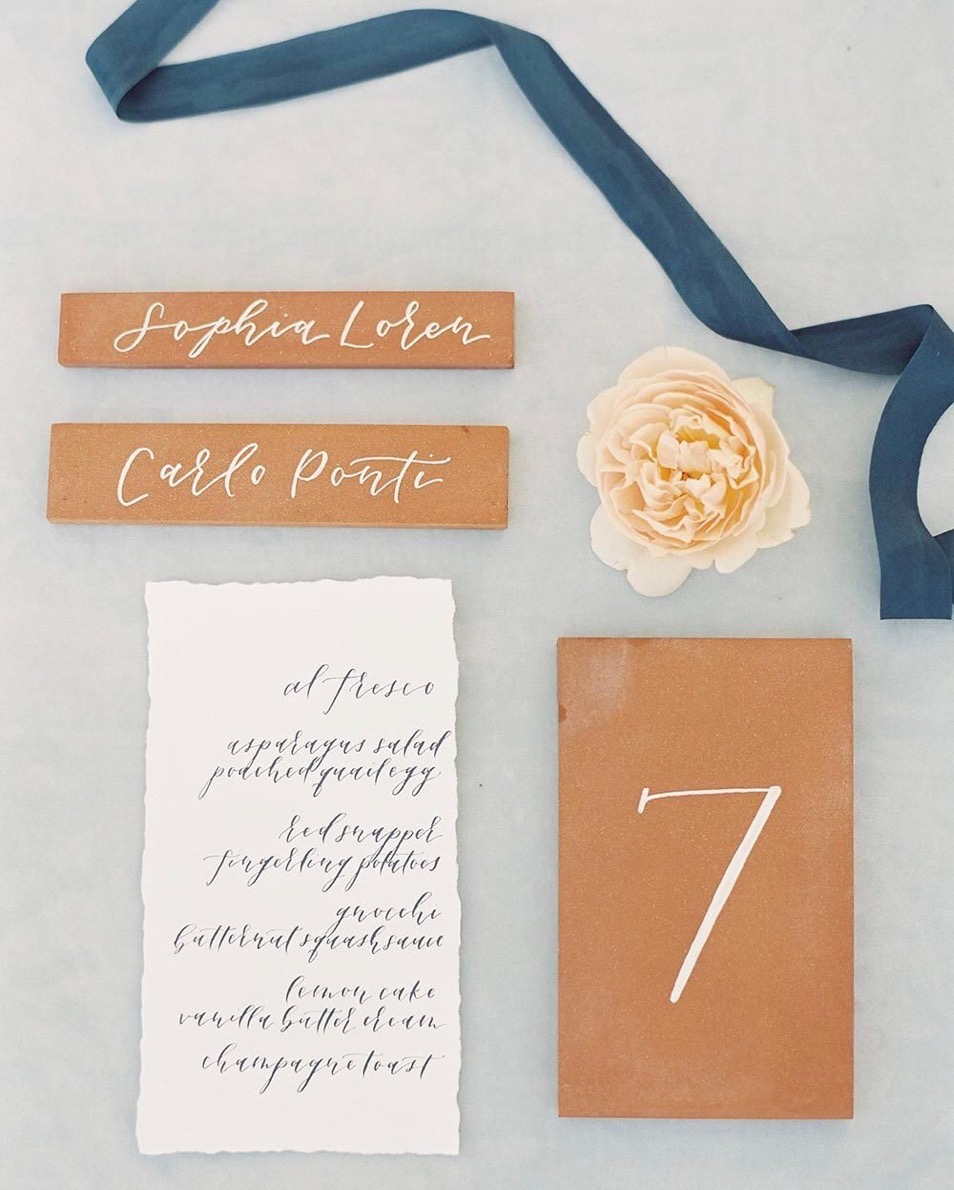 Sophia Loren
Carlo Ponti
al fresco
asparagus salad
poached quail egg
red snapper
fingerling potatoes
gnocchi
butternut squash sauce
lemon cake
vanilla butter cream
champagne toast
7